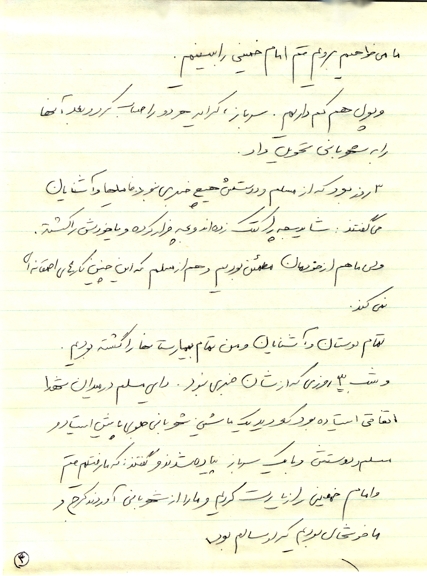 ما می خواهیم برویم قم امام خمینی را ببینیم.
و پول هم کم داریم. سرباز، کرایه خودرو را حساب کرد و بعد آنها
را به شهربانی تحویل داد.
۳ روز بود که از مسلم و دوستش هیچ خبری نبود فامیلها و آشنایان
می گفتند: شاید بچه را کتک زده اند و بچه فرار کرده و یا خودش را کشته.
ولی ما هم از خودمان مطمئن بودیم و هم از مسلم که این چنین کارهای احمقانه ای
نمی کند.
تمام دوستان و آشنایان و من تمام بیمارستانها را گشته بودیم.
و شب ۳ روزی که ازشان خبری نبود. دایی مسلم در میدان شهدا
اتفاقی ایستاده بود که دید یک ماشین شهربانی جلوی پایش ایستاد و
مسلم و دوستش و با یک سرباز پیاده شدند و گفتند: که ما رفتیم قم
و امام خمینی را زیارت کردیم و ما را از شهربانی آوردند کرج و
ما خوشحال بودیم که او سالم بود.
۴